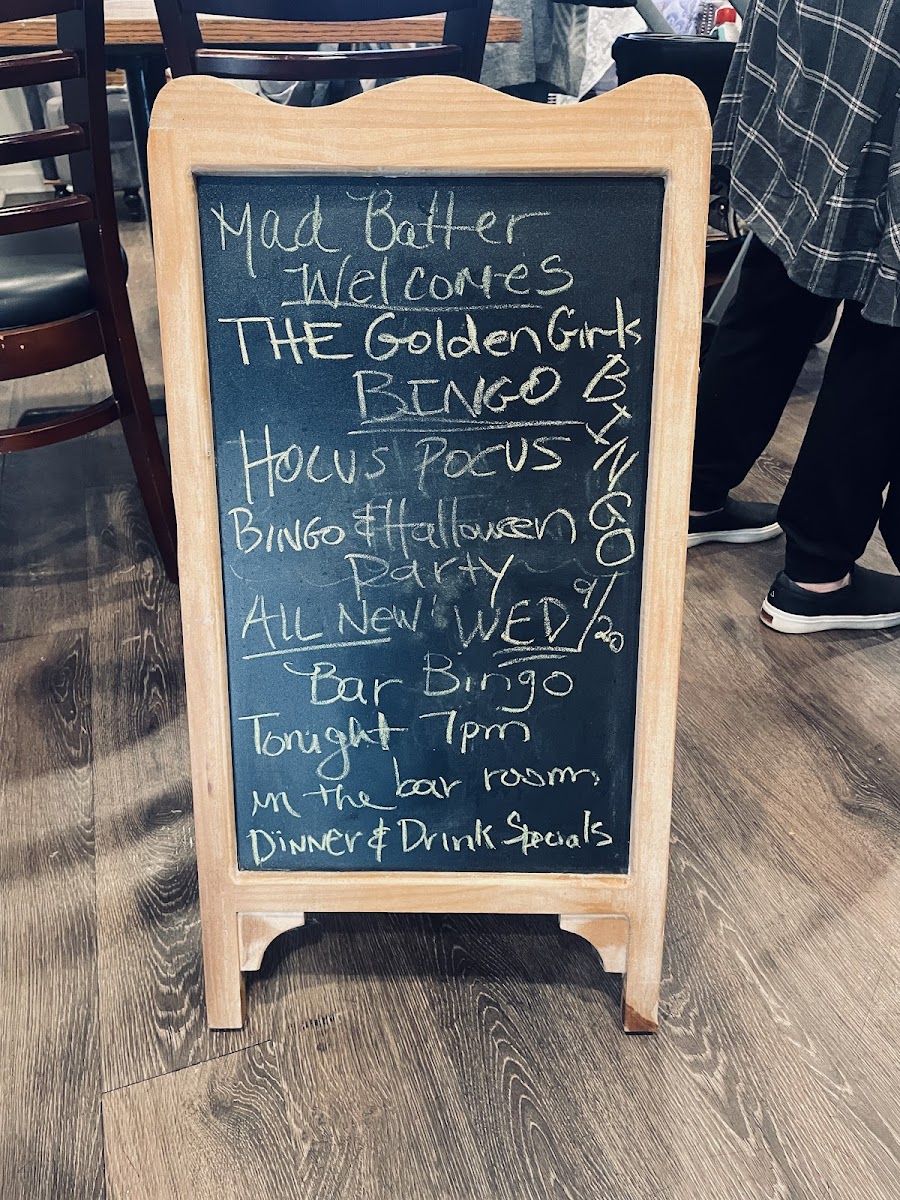 Mad Batter
Welcomes
THE Golden Girls
BINGO
BINGO
HOCUS POCUS
BINGO & Halloween
Party
ALL New! WED 9/20
Bar Bingo
Tonight 7pm
in the bar room
DINNER & Drink Specials